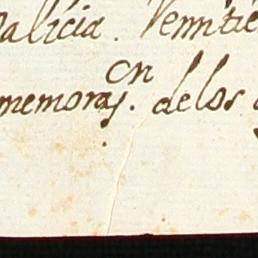 alicia. Venntie
cn
memoraj. delos